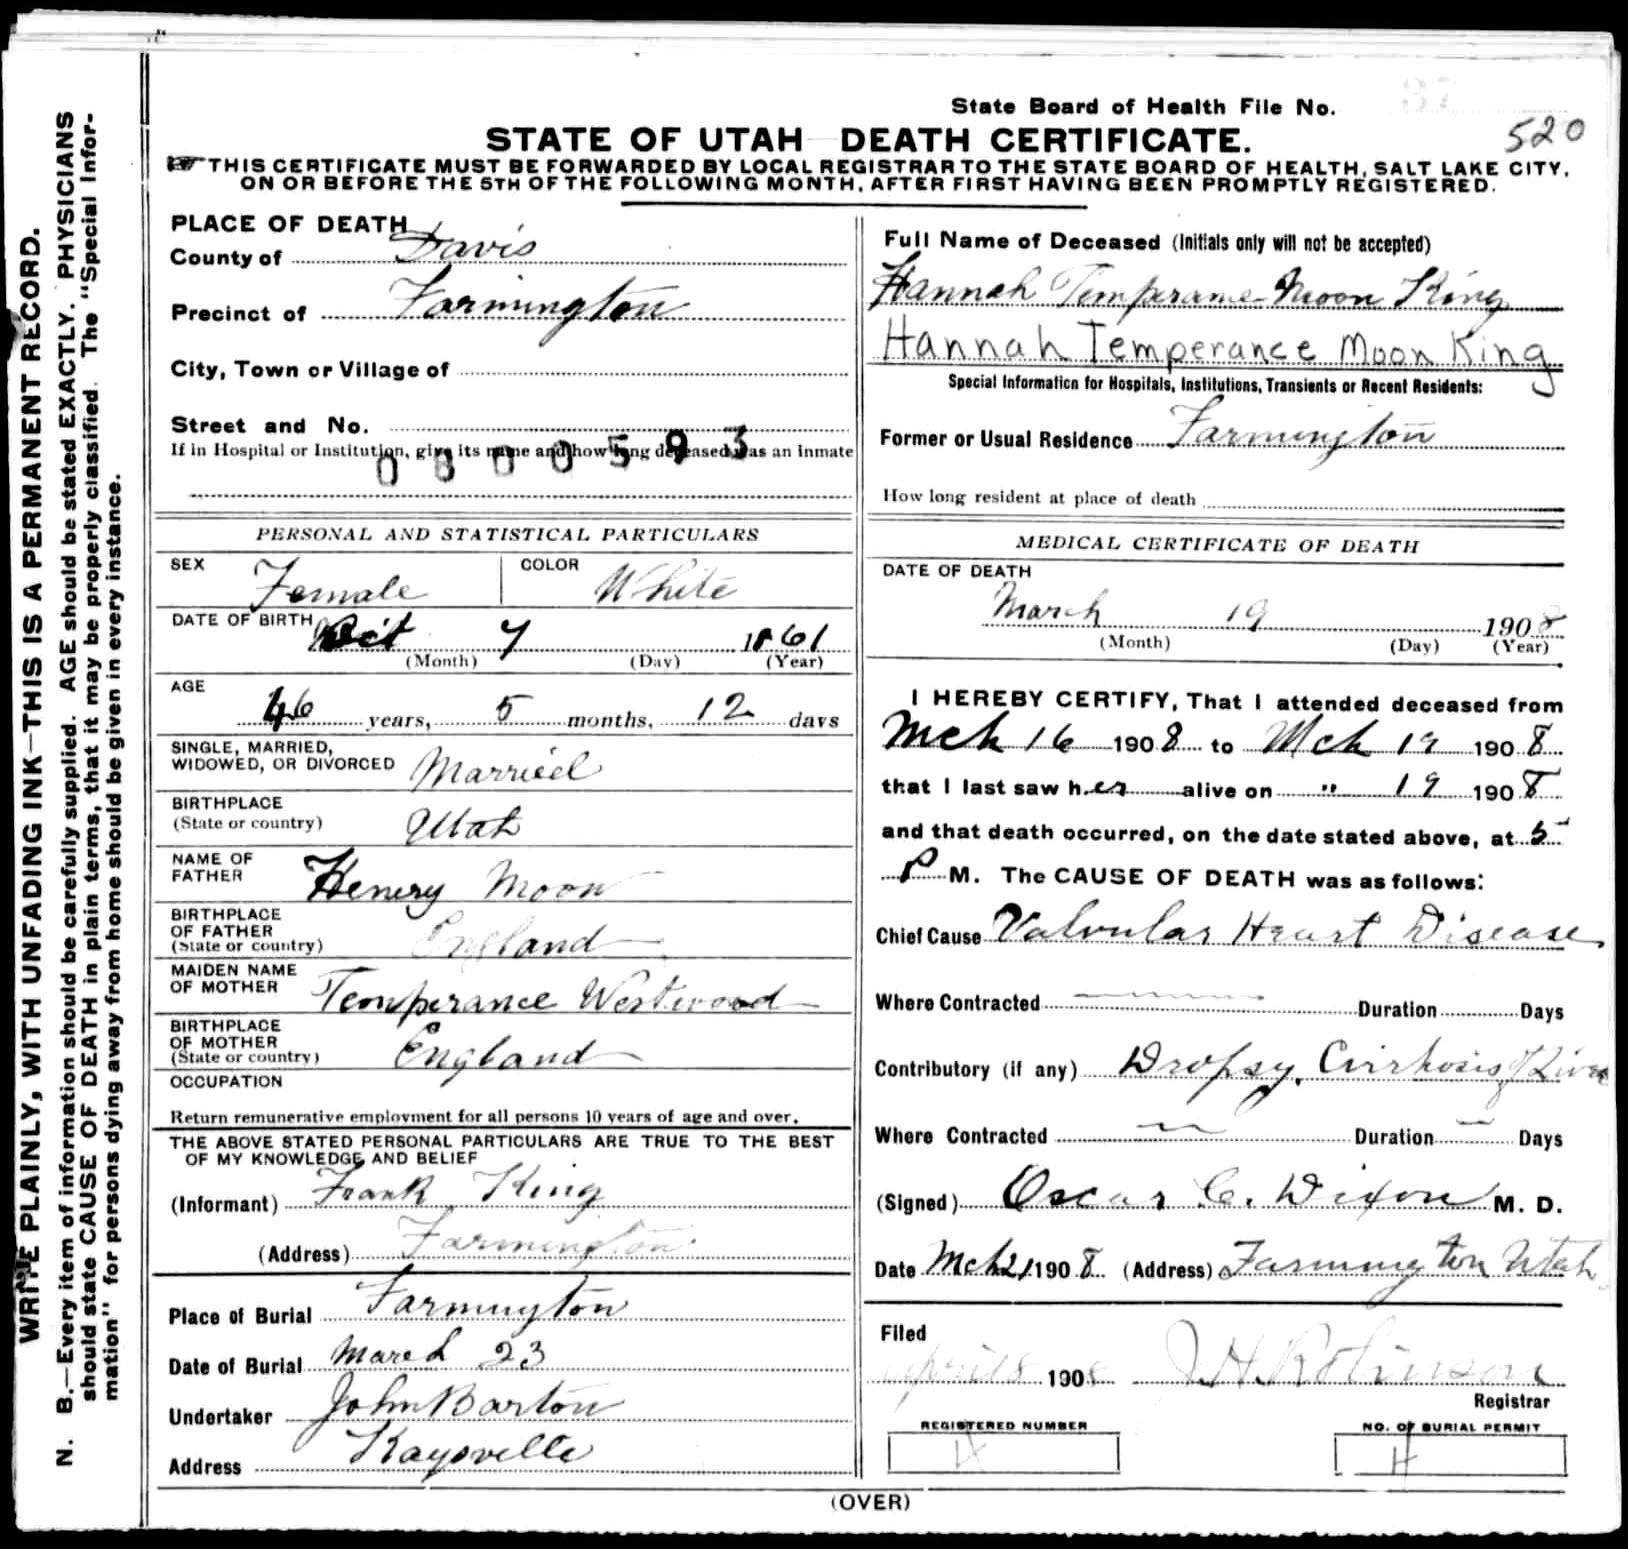 State Board of Health File No.
520
STATE OF UTAH DEATH CERTIFICATE.
THIS CERTIFICATE MUST BE FORWARDED BY LOCAL REGISTRAR TO THE STATE BOARD OF HEALTH, SALT LAKE CITY,
ON OR BEFORE THE 5TH OF THE FOLLOWING MONTH, AFTER FIRST HAVING BEEN PROMPTLY REGISTERED.
WRITE PLAINLY, WITH UNFADING INK—THIS IS A PERMANENT RECORD.
N. B.—Every item of information should be carefully supplied. AGE should be stated EXACTLY. PHYSICIANS
should state CAUSE OF DEATH in plain terms, that it may be properly classified. The "Special Infor-
mation" for persons dying away from home should be given in every instance.
PLACE OF DEATH
County of Davis
Precinct of Farmington
City, Town or Village of
Street and No.
If in Hospital or Institution, give its name and how long deceased was an inmate
0800593
PERSONAL AND STATISTICAL PARTICULARS
SEX Female COLOR White
DATE OF BIRTH Oct 7 1861
(Month) (Day) (Year)
AGE
46 years, 5 months, 12 days
SINGLE, MARRIED,
WIDOWED, OR DIVORCED Married
BIRTHPLACE
(State or country) Utah
NAME OF
FATHER Henery Moon
BIRTHPLACE
OF FATHER
(State or country) England
MAIDEN NAME
OF MOTHER Temperance Westwood
BIRTHPLACE
OF MOTHER
(State or country) England
OCCUPATION
Return remunerative employment for all persons 10 years of age and over.
THE ABOVE STATED PERSONAL PARTICULARS ARE TRUE TO THE BEST
OF MY KNOWLEDGE AND BELIEF
(Informant) Frank King
(Address) Farmington
Place of Burial Farmington
Date of Burial March 23
Undertaker John Barton
Address Kaysville
Full Name of Deceased (Initials only will not be accepted)
Hannah Temperance Moon King
Hannah Temperance Moon King
Special Information for Hospitals, Institutions, Transients or Recent Residents:
Former or Usual Residence Farmington
How long resident at place of death
MEDICAL CERTIFICATE OF DEATH
DATE OF DEATH
March 19 1908
(Month) (Day) (Year)
I HEREBY CERTIFY, That I attended deceased from
Mch 16 1908 to Mch 19 1908
that I last saw her alive on " 19 1908
and that death occurred, on the date stated above, at 5
P M. The CAUSE OF DEATH was as follows:
Chief Cause Valvular Heart Disease
Where Contracted Duration Days
Contributory (if any) Dropsy, Cirrhosis of Liver
Where Contracted Duration Days
(Signed) Oscar C. Dixon M. D.
Date Mch 21 1908 (Address) Farmington Utah
Filed
April 8 1908 J H Robinson
Registrar
REGISTERED NUMBER NO. OF BURIAL PERMIT
4 4
(OVER)